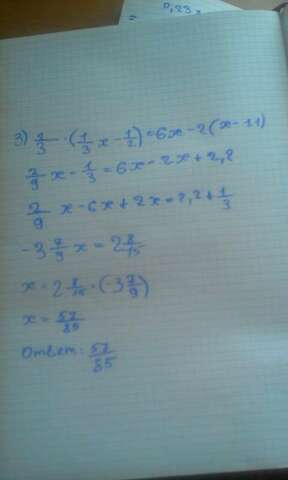 0,23
=
3) 2/3 · (1/3 x - 1/2) = 6x - 2(x - 1.1)
2/9 x - 1/3 = 6x - 2x + 2,2
2/9 x - 6x + 2x = 2,2 + 1/3
-3 7/9 x = 2 8/15
x = 2 8/15 · (-3 7/9)
x = 57/85
Ответ: 57/85